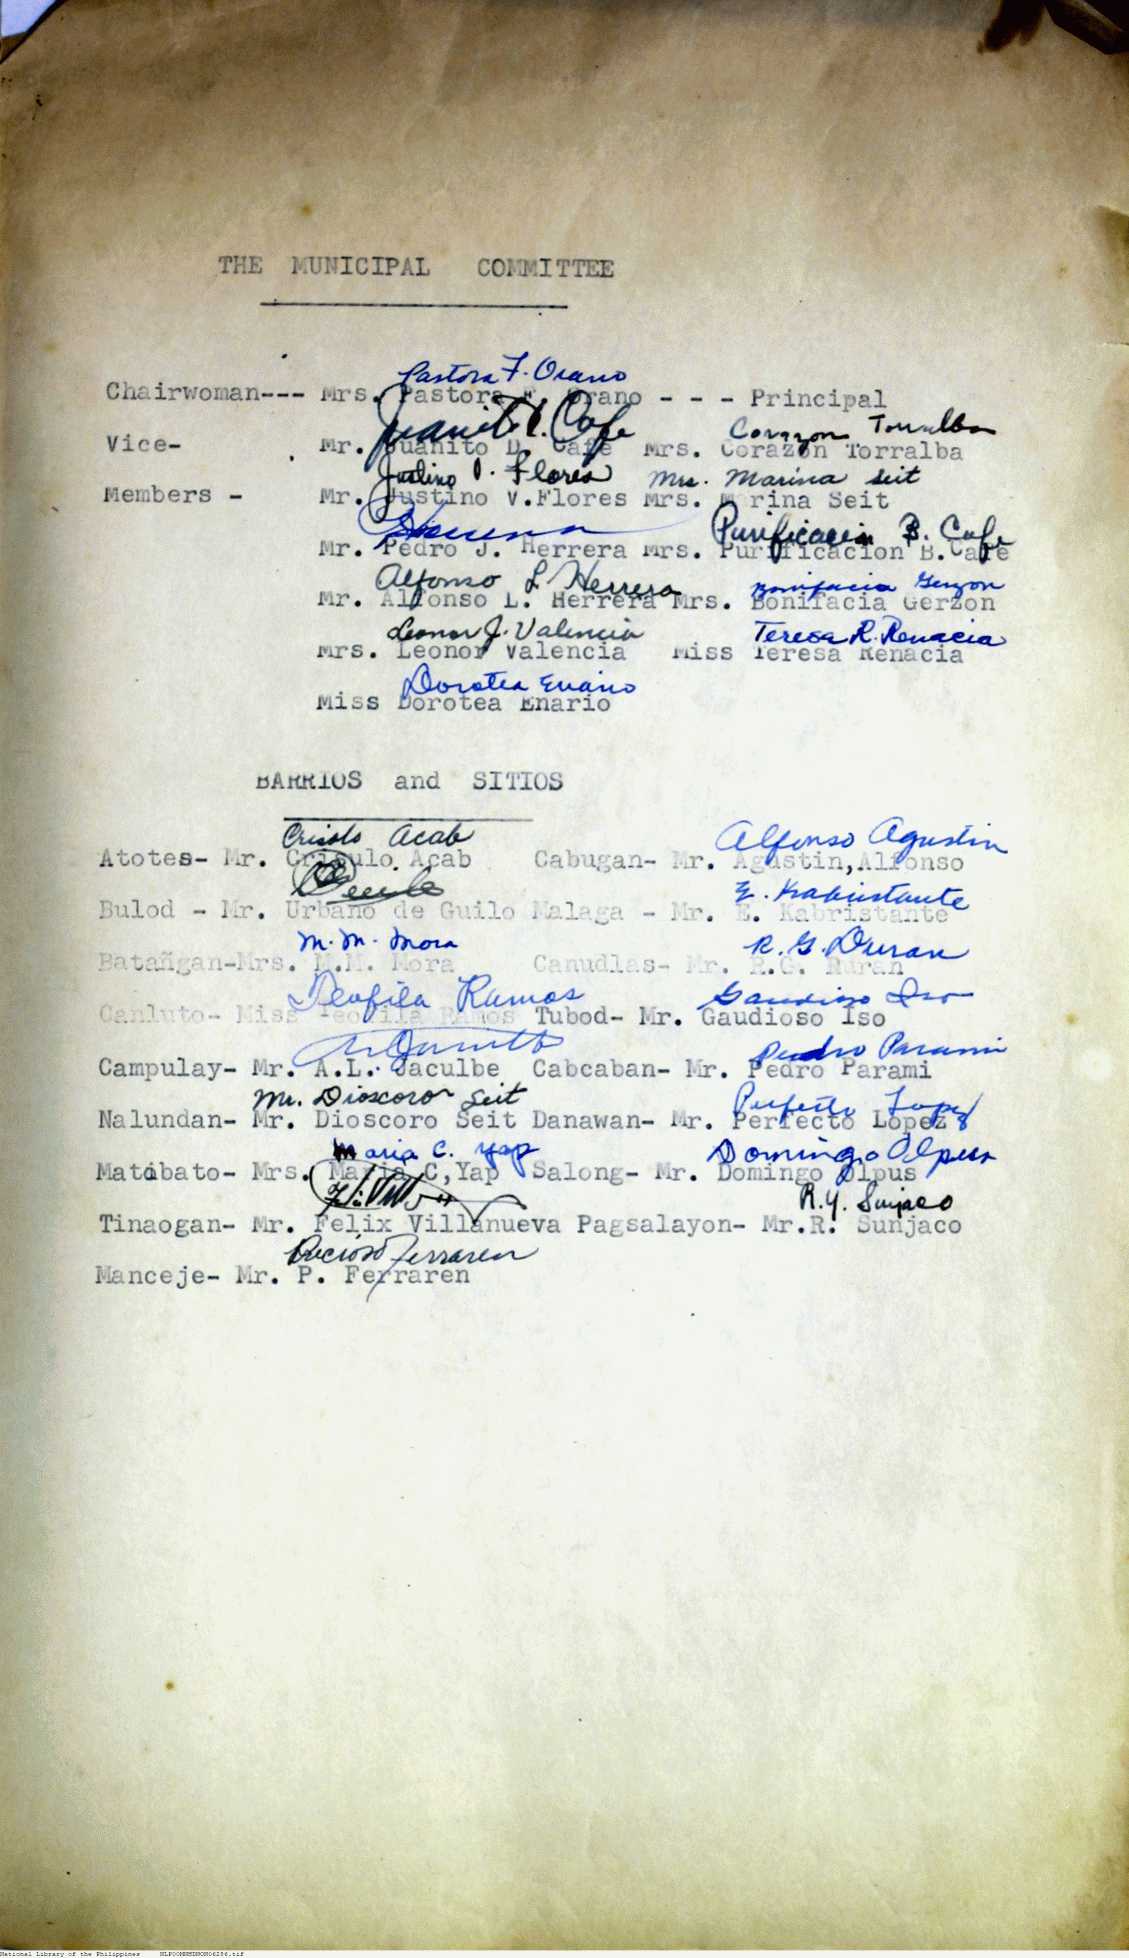 THE MUNICIPAL COMMITTEE
Pastora F. Orano
Chairwoman--- Mrs. Pastora F. Orano - - - Principal
Juanito D. Cafe Corazon Torralba
Vice- Mr. Juanito D. Cafe Mrs. Corazon Torralba
Justino V. Flores Mrs. Marina Seit
Members - Mr. Justino V.Flores Mrs. Marina Seit
Herrera Purificacion B. Cafe
Mr. Pedro J. Herrera Mrs. Purificacion B.Cafe
Alfonso L. Herrera Bonifacia Gerzon
Mr. Alfonso L. Herrera Mrs. Bonifacia Gerzon
Leonor J. Valencia Teresa R. Renacia
Mrs. Leonor Valencia Miss Teresa Renacia
Dorotea Enario
Miss Dorotea Enario
BARRIOS and SITIOS
Crisolo Acab Alfonso Agustin
Atotes- Mr. Crisulo Acab Cabugan- Mr. Agustin,Alfonso
E. Kabristante
Bulod - Mr. Urbano de Guilo Malaga - Mr. E. Kabristante
M. M. Mora R. G. Duran
Batañgan-Mrs. M.M. Mora Canudlas- Mr. R.G. Ruran
Teofila Ramos Gaudioso Iso
Canluto- Miss Teofila Ramos Tubod- Mr. Gaudioso Iso
Pedro Parami
Campulay- Mr. A.L. Jaculbe Cabcaban- Mr. Pedro Parami
Mr. Dioscoro Seit Perfecto Lopez
Nalundan- Mr. Dioscoro Seit Danawan- Mr. Perfecto Lopez
Maria C. Yap Domingo Olpus
Matobato- Mrs. Maria C,Yap Salong- Mr. Domingo Olpus
R. Y. Sunjaco
Tinaogan- Mr. Felix Villanueva Pagsalayon- Mr.R. Sunjaco
Precioso Ferraren
Manceje- Mr. P. Ferraren
National Library of the Philippines